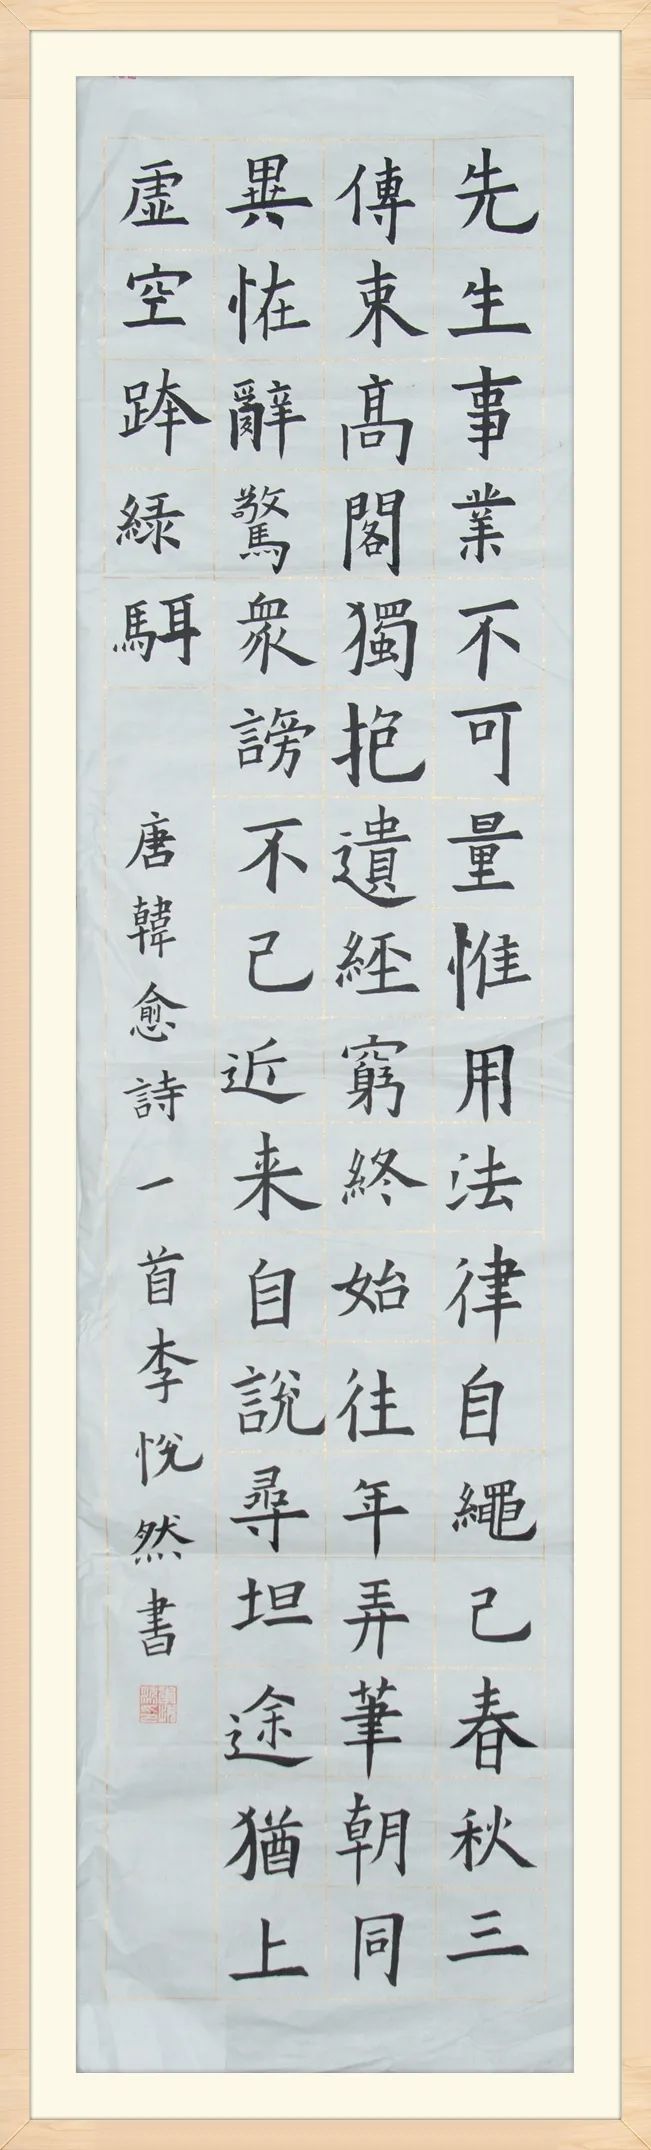 先生事業不可量惟用法律自繩己春秋三
傳束髙閣獨抱遺經窮終始往年弄筆朝同
異恠辭驚衆謗不已近来自說尋坦途猶上
虛空跨綠駬
唐韓愈詩一首李悅然書